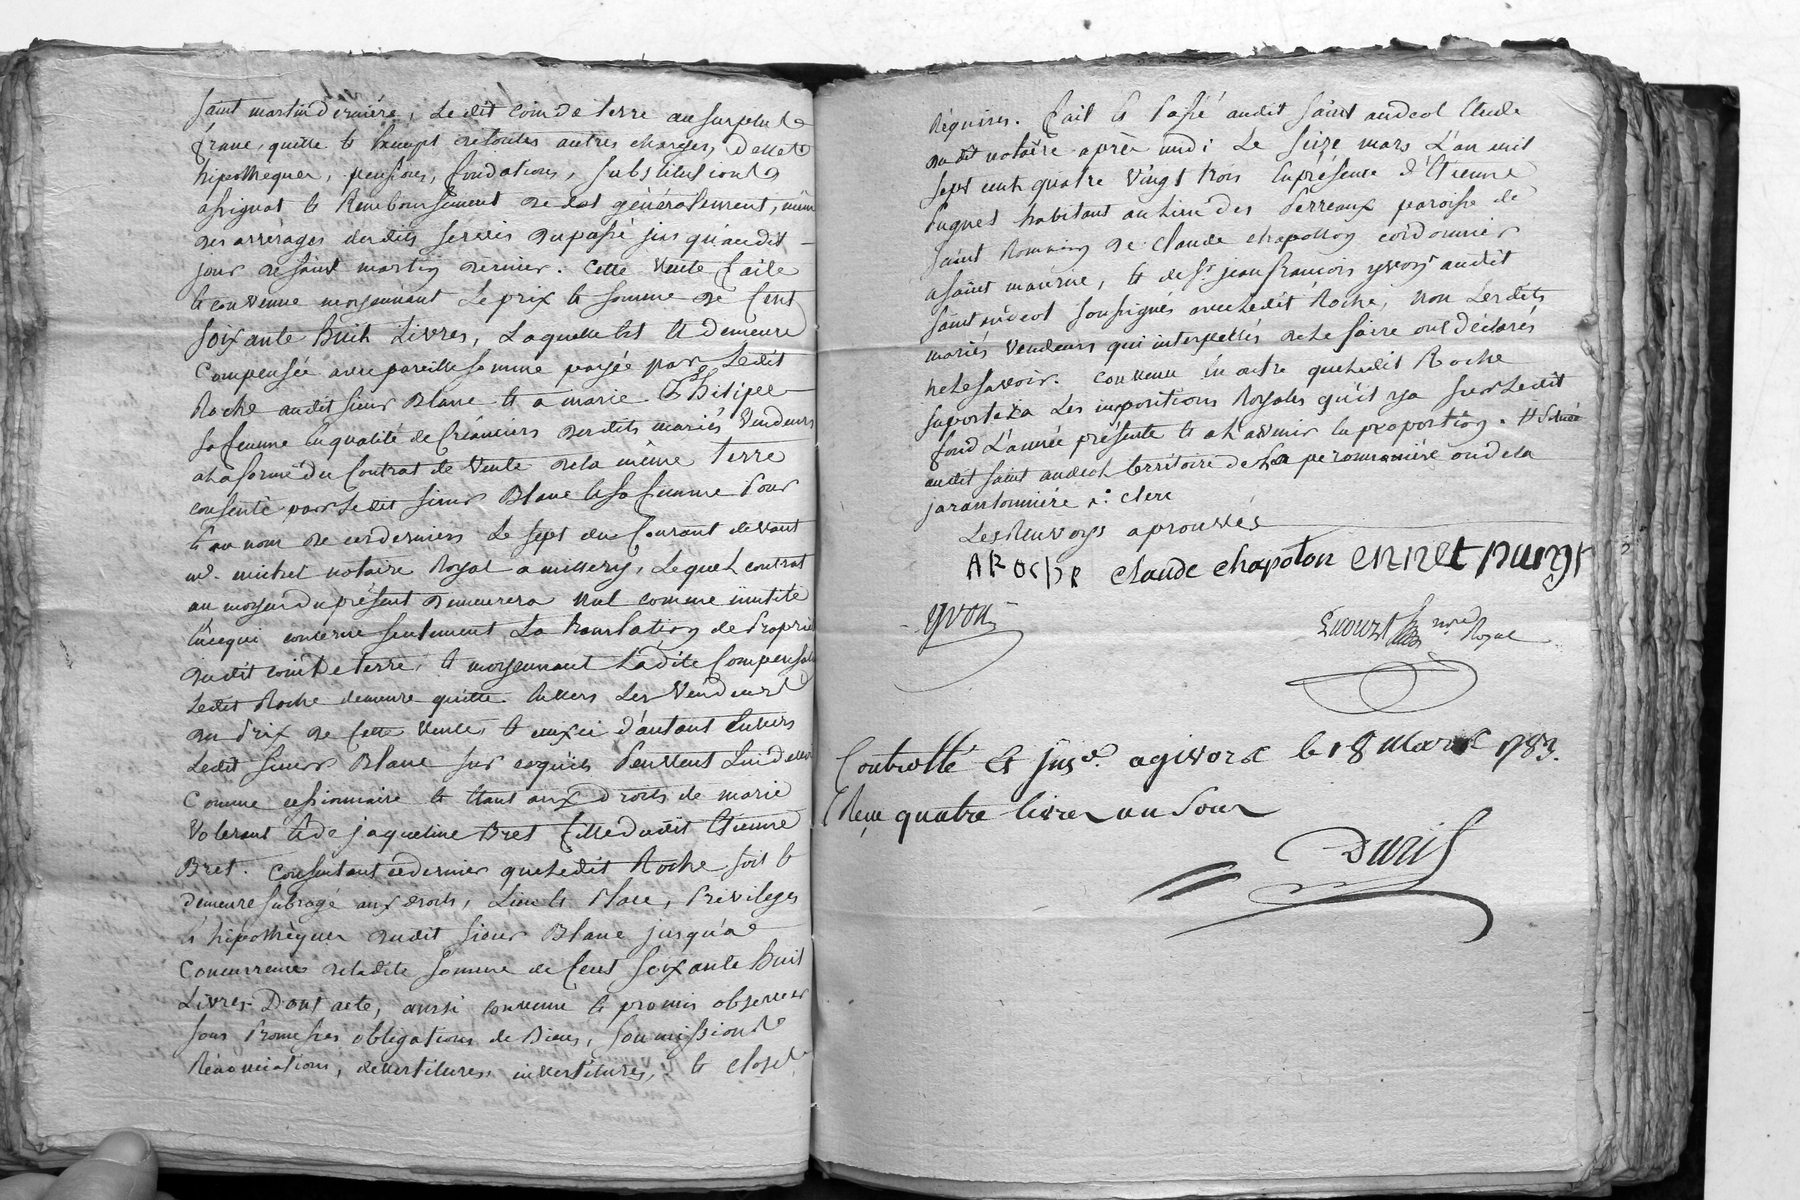 saint martin derniére, Ledit Coin de terre au surplus
franc, quitte & Exempt de toutes autres charges, Dettes
hipotheques, pensions, fondations, substitutions
assignat & Remboursement de dot généralement, même
des arrérages desdits servis du passé jusqu'audit
jour de saint martin dernier. Cette Vente faite
& convenue moyennant Le prix & somme de Cent
soixante huit Livres, Laquelle est & demeure
Compensée avec pareille somme payée par Ledit
Roche audit sieur Blanc & a marie
sa femme En qualité de Créanciers desdits mariés Vendeurs
a La forme du Contrat de Vente de la même terre
consentie par Ledit sieur Blanc & sa femme Pour
& au nom de ces derniers Le sept du Courant devant
me. michel notaire Royal a millery, Lequel contrat
au moyen du présent demeurera Nul comme inutile
En ce qui concerne seulement La translation de Proprie
dudit coin De terre, & moyennant Ladite Compensa
Ledit Roche demeure quitte Envers Les Vendeurs
du Prix de Cette Vente & eux ici d'autant Envers
Ledit sieur Blanc sur ce qu'ils Peuvent Lui devoir
Comme cessionnaire & Etant aux Droits de marie
Volerant & de jaqueline Bret fille dudit Etienne
Bret. Consentant ce dernier que Ledit Roche soit &
demeure subrogé aux droits, Lieu & Place, Privileges
& hipothèques dudit sieur Blanc jusqu'a
Concurrence de ladite somme de Cent soixante huit
Livres. Dont acte, aussi convenu & promis observer
sous Promesses obligations de Biens, soumissions
Rénonciations, devestitures investitures, & closes
Réquises. Fait & Passé audit saint andeol Etude
dudit notaire après midi Le seize mars L'an mil
sept cent quatre Vingt trois En présence d'Etienne
Pugnet habitant au Lieu des Perreaux paroisse de
saint Romain de Claude chapotton cordonnier
a saint maurice, & de sr. jean francois yvon audit
saint andeol soussignés avec Ledit Roche, non Lesdits
mariés Vendeurs qui interpellés de Le faire ont déclarés
ne Le savoir. Convenu En outre que Ledit Roche
suportera Les impositions Royales qu'il y a sur Ledit
fond L'année présente & a L'avenir En proportion. # située
audit saint andeol territoire de La peronnniére ou de la
jarantonniére
Les Renvoys aprouvés
AROche Claude chapoton
yvon
nore Royal
Controllé Et Insé. a givors le 18 Mars 1783.
Reçu quatre livres un sou